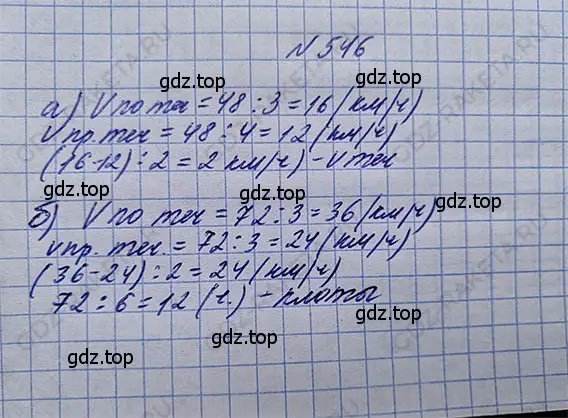 N 546
gdz.top gdz.top
а) V по теч = 48 : 3 = 16 (км/ч)
v пр. теч = 48 : 4 = 12 (км/ч)
(16-12) : 2 = 2 км/ч) - v теч
gdz.top gdz.top
б) V по теч = 72 : 3 = 36 (км/ч)
v пр. теч. = 72 : 3 = 24 (км/ч)
gdz.top gdz.top
(36-24) : 2 = 24 (км/ч)
72 : 6 = 12 (ч.) - плоты
gdz.top gdz.top